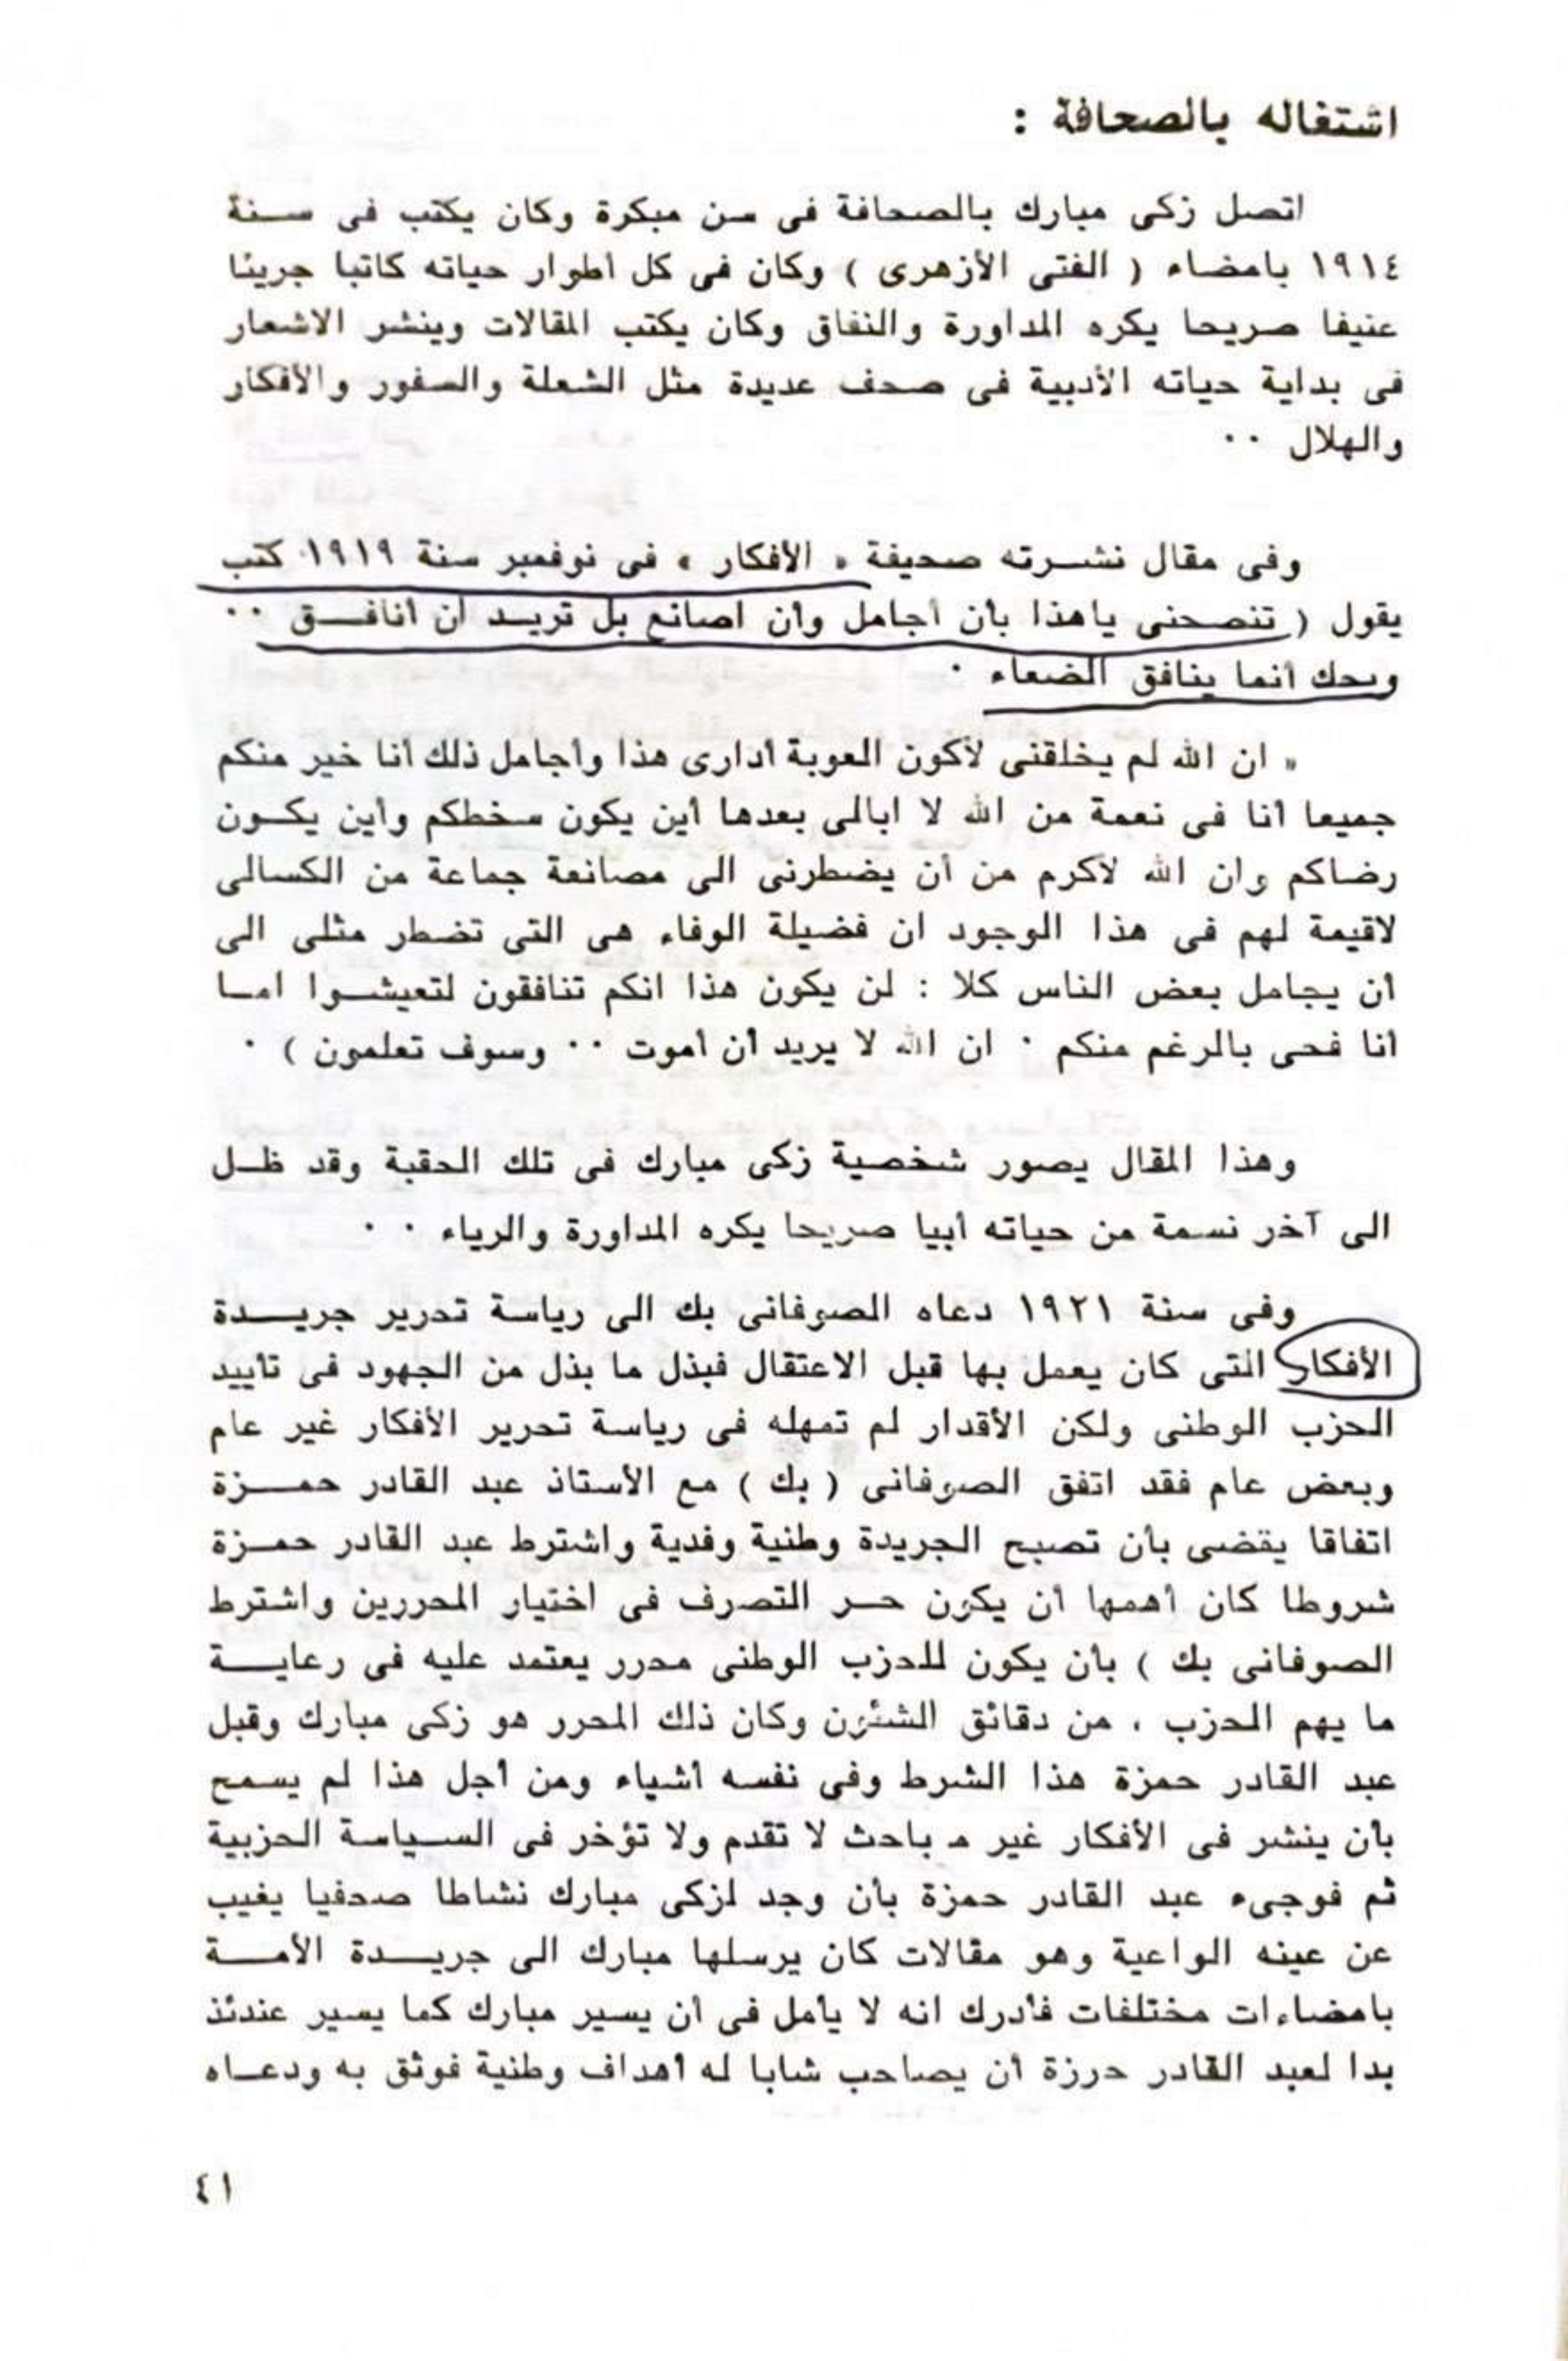 اشتغاله بالصحافة :
اتصل زكى مبارك بالصحافة فى سن مبكرة وكان يكتب فى سنة
١٩١٤ بامضاء ( الفتى الأزهرى ) وكان فى كل أطوار حياته كاتبا جريئا
عنيفا صريحا يكره المداورة والنفاق وكان يكتب المقالات وينشر الاشعار
فى بداية حياته الأدبية فى صحف عديدة مثل الشعلة والسفور والأفكار
والهلال ٠٠
وفى مقال نشرته صحيفة « الأفكار » فى نوفمبر سنة ١٩١٩ كتب
يقول ( تنصحنى ياهذا بأن أجامل وأن اصانع بل تريد أن أنافق ٠٠
ويحك أنما ينافق الضعاء ٠
« ان الله لم يخلقنى لأكون العوبة أدارى هذا وأجامل ذلك أنا خير منكم
جميعا أنا فى نعمة من الله لا ابالى بعدها أين يكون سخطكم وأين يكون
رضاكم وان الله لأكرم من أن يضطرنى الى مصانعة جماعة من الكسالى
لاقيمة لهم فى هذا الوجود ان فضيلة الوفاء هى التى تضطر مثلى الى
أن يجامل بعض الناس كلا : لن يكون هذا انكم تنافقون لتعيشوا اما
أنا فحى بالرغم منكم ٠ ان الله لا يريد أن أموت ٠٠ وسوف تعلمون ) ٠
وهذا المقال يصور شخصية زكى مبارك فى تلك الحقبة وقد ظل
الى آخر نسمة من حياته أبيا صريحا يكره المداورة والرياء ٠ ٠
وفى سنة ١٩٢١ دعاه الصوفانى بك الى رياسة تحرير جريدة
الأفكار التى كان يعمل بها قبل الاعتقال فبذل ما بذل من الجهود فى تأييد
الحزب الوطنى ولكن الأقدار لم تمهله فى رياسة تحرير الأفكار غير عام
وبعض عام فقد اتفق الصوفانى ( بك ) مع الأستاذ عبد القادر حمزة
اتفاقا يقضى بأن تصبح الجريدة وطنية وفدية واشترط عبد القادر حمزة
شروطا كان أهمها أن يكون حر التصرف فى اختيار المحررين واشترط
الصوفانى بك ) بأن يكون للحزب الوطنى محرر يعتمد عليه فى رعاية
ما يهم الحزب ، من دقائق الشئون وكان ذلك المحرر هو زكى مبارك وقبل
عبد القادر حمزة هذا الشرط وفى نفسه أشياء ومن أجل هذا لم يسمح
بأن ينشر فى الأفكار غير مباحث لا تقدم ولا تؤخر فى السياسة الحزبية
ثم فوجىء عبد القادر حمزة بأن وجد لزكى مبارك نشاطا صحفيا يغيب
عن عينه الواعية وهو مقالات كان يرسلها مبارك الى جريدة الأمة
بامضاءات مختلفات فأدرك انه لا يأمل فى أن يسير مبارك كما يسير عندئذ
بدا لعبد القادر حرزة أن يصاحب شابا له أهداف وطنية فوثق به ودعاه
٤١